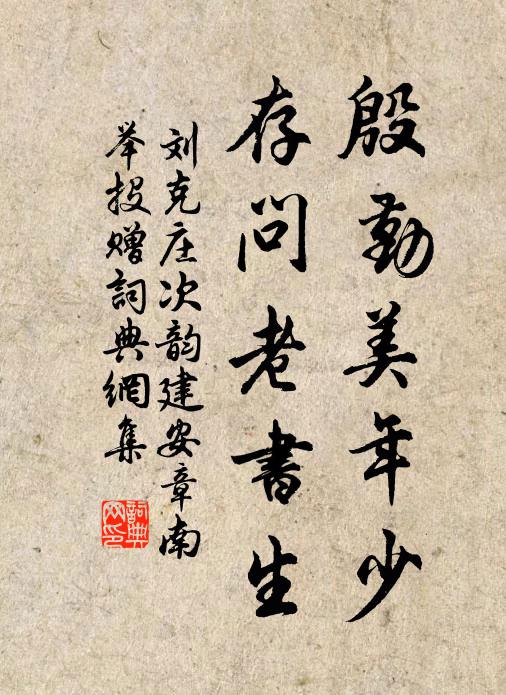 殷勤美年少
存問老書生
刘克庄次韵建安章南
举投赠詞典網集
詞典
网印